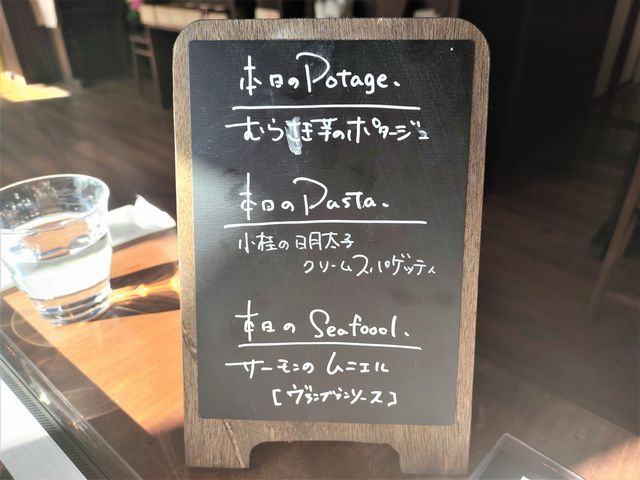 本日のPotage.
むらさき芋のポタージュ
本日のPasta.
小柱の明太子
クリームスパゲッティ
本日の Seafood.
サーモンの ムニエル
[ヴァンブランソース]